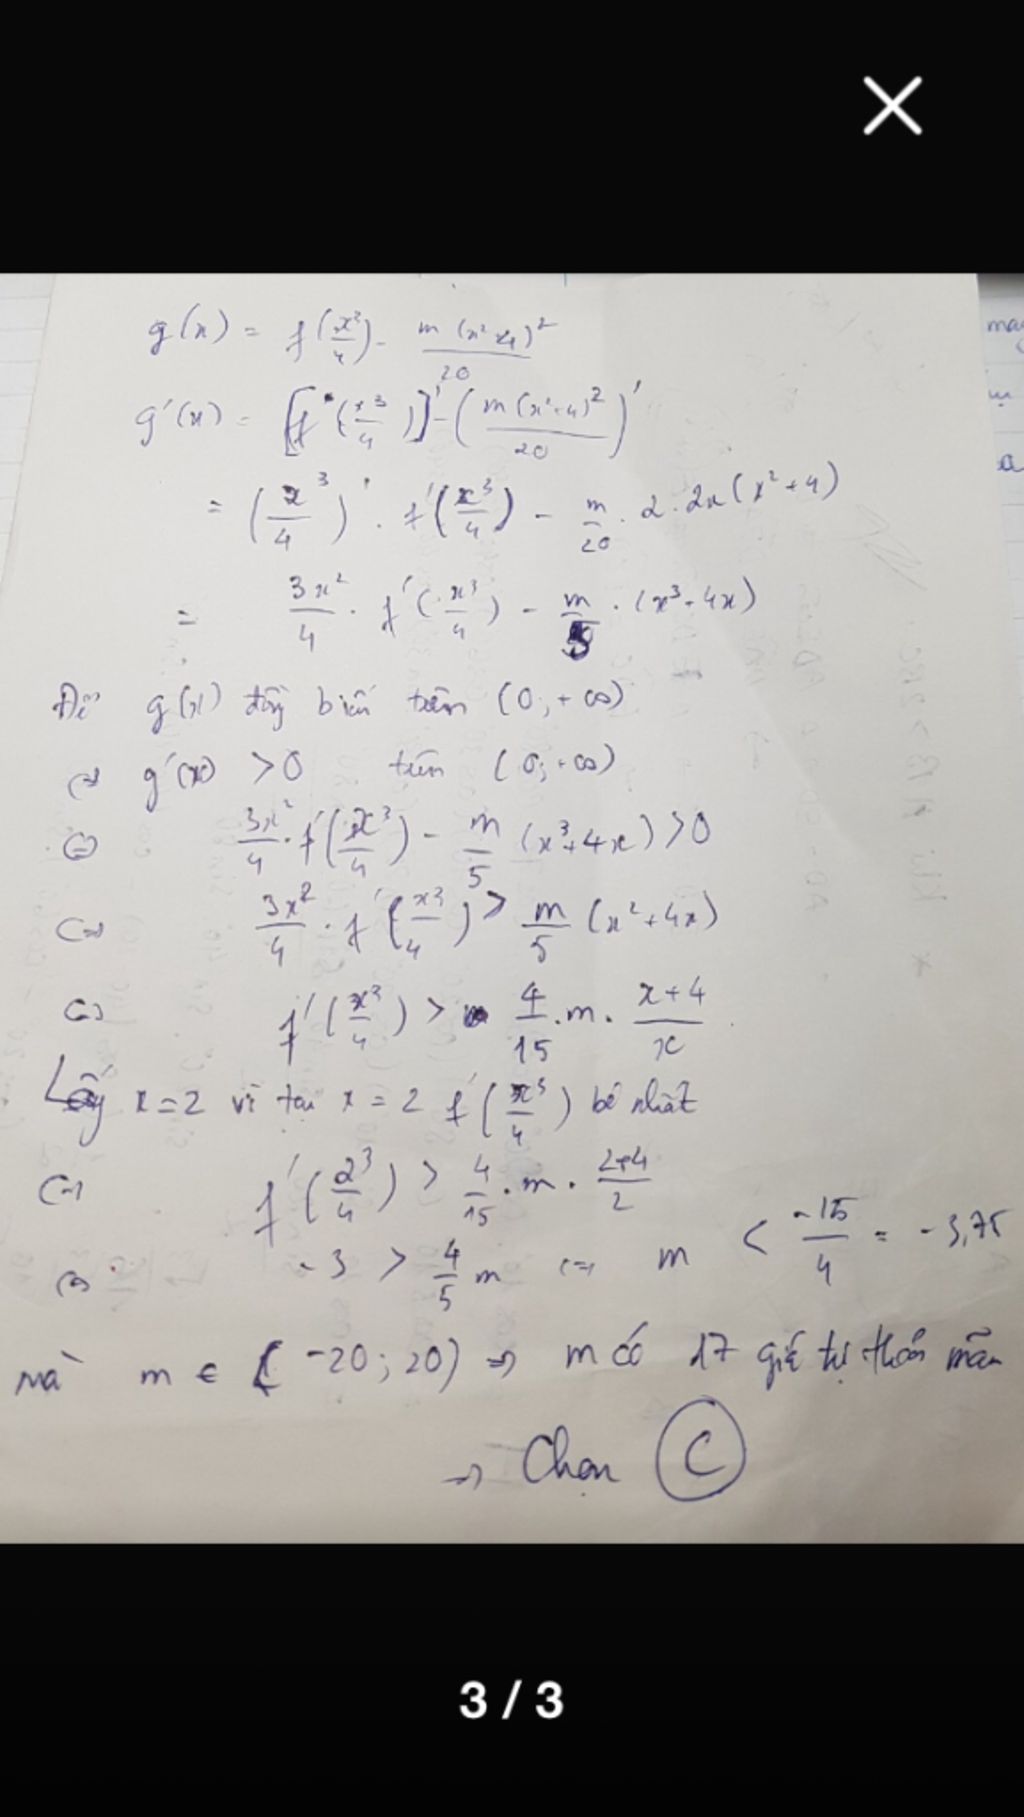 g(x) = f(x³/4) - m(x²+4)²/20
g'(x) = [f(x³/4)]' - (m(x²+4)²/20)'
= (x³/4)' . f'(x³/4) - m/20 . 2 . 2x(x²+4)
= 3x²/4 . f'(x³/4) - m/5 . (x³+4x)
Để g(x) đồng biến trên (0;+∞)
⇔ g'(x) > 0 trên (0;+∞)
⇔ 3x²/4 . f'(x³/4) - m/5 (x³+4x) > 0
⇔ 3x²/4 . f'(x³/4) > m/5 (x²+4x)
⇔ f'(x³/4) > 4/15 . m . x+4/x
Lấy x=2 vì tại x = 2 f'(x³/4) bé nhất
⇔ f'(2³/4) > 4/15 . m . 2+4/2
⇔ -3 > 4/5 m ⇔ m < -15/4 = -3,75
mà m ∈ (-20; 20) ⇒ m có 17 giá trị thỏa mãn
⇒ Chọn C
3 / 3